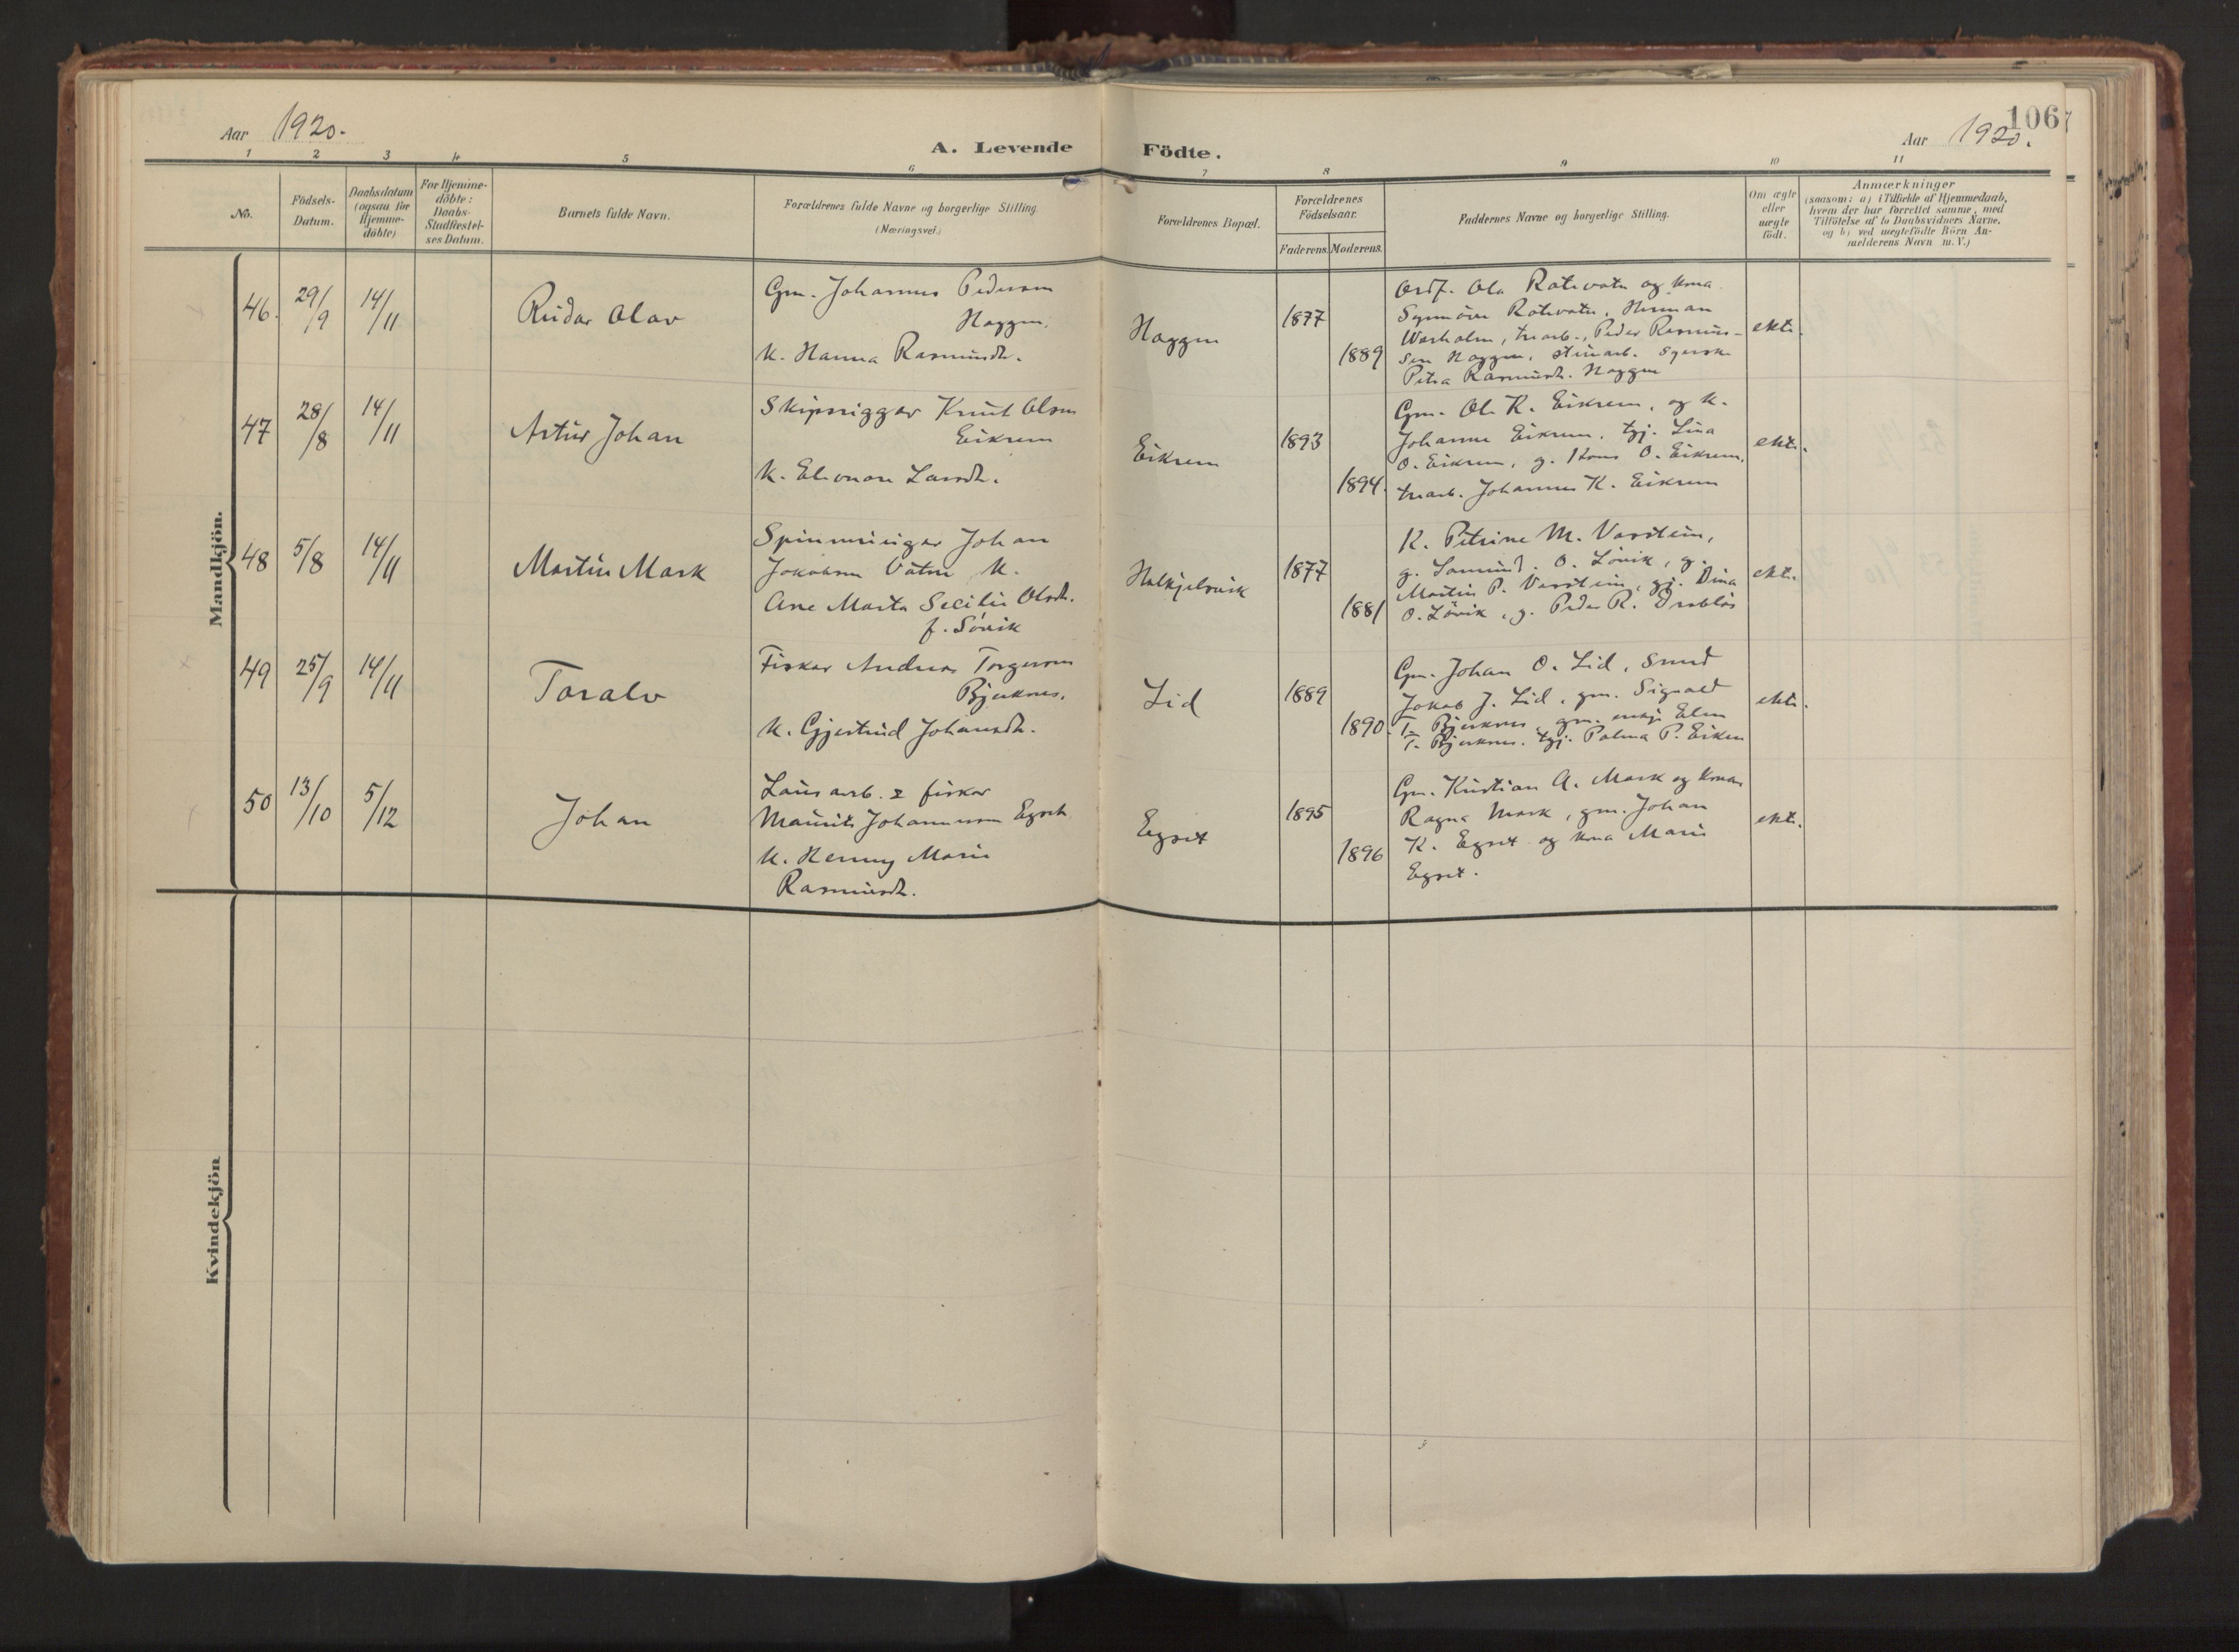 Aar 1920.
A. Levende Födte.
Aar 1920.
106
1 2 3 4 5 6 7 8 9 10 11
No.
Födsels-
Datum.
Daabsdatum
(ogsaa for
Hjemme-
döbte)
For Hjemme-
döbte:
Daabs-
Stadfæstel-
ses Datum.
Barnets fulde Navn.
Forældrenes fulde Navne og borgerlige Stilling.
(Næringsvei.)
Forældrenes Bopæl.
Forældrenes
Födselsaar.
Faderens. Moderens.
Faddernes Navne og borgerlige Stilling.
Om ægte
eller
uægte
födt.
Anmærkninger
(saasom: a) i Tilfælde af Hjemmedaab,
hvem der har forrettet samme, med
Tilföielse af to Daabsvidners Navne,
og b) ved uægtefödte Börn An-
melderens Navn m. V.)
Mandkjön.
46. 29/9 14/11
Reidar Olav
Gm. Johannes Pedersen
Haggen.
K. Hanna Rasmusdt.
Haggen
1877
1889
Ordf. Ola Rotevatn og kona
Synnöve Rotevatn, Herman
Warholm, trearb., Peder Rasmus-
sen Haggen, steinarb. Syerske
Petra Rasmusdt. Haggen
ekte.
47 28/8 14/11
Artur Johan
Skipsrigger Knut Olsen
Eikrem
K. Elionore Larsdt.
Eikrem
1893
1894.
Gm. Ole K. Eikrem, og k.
Johanne Eikrem, tgj. Lina
O. Eikrem, g. Hans O. Eikrem,
trearb. Johannes K. Eikrem
ekte.
48 5/8 14/11
Martin Mark
Spinnerieigar Johan
Jokobsen Vatne K.
Ane Marta Secilie Olsdt.
f. Lövik
Halkjelsvik
1877
1881
K. Petrine M. Varstein,
g. Samund. O. Lövik, g.
Martin P. Varstein, gj. Dina
O. Lövik, g. Peder R. Drabløs
ekte.
49 25/9 14/11
Toralv
Fiskar Andreas Torgersen
Bjerknes.
K. Gjertrud Johansdt.
Lid
1889
1890.
Gm. Johan O. Lid, Smed
Jokob J. Lid, gm. Sigvald
T. Bjerknes, gm. enkje Elen
T. Bjerknes. tgj. Palma P. Eiken
ekte.
50 13/10 5/12
Johan
Lausarb. & fiskar
Maurits Johannesen Egset
K. Henny Marie
Rasmusdt.
Egset
1895
1896
Gm. Kristian A. Mark og konen
Ragna Mark, gm. Johan
K. Egset og kona Marie
Egset.
ekte.
Kvindekjön